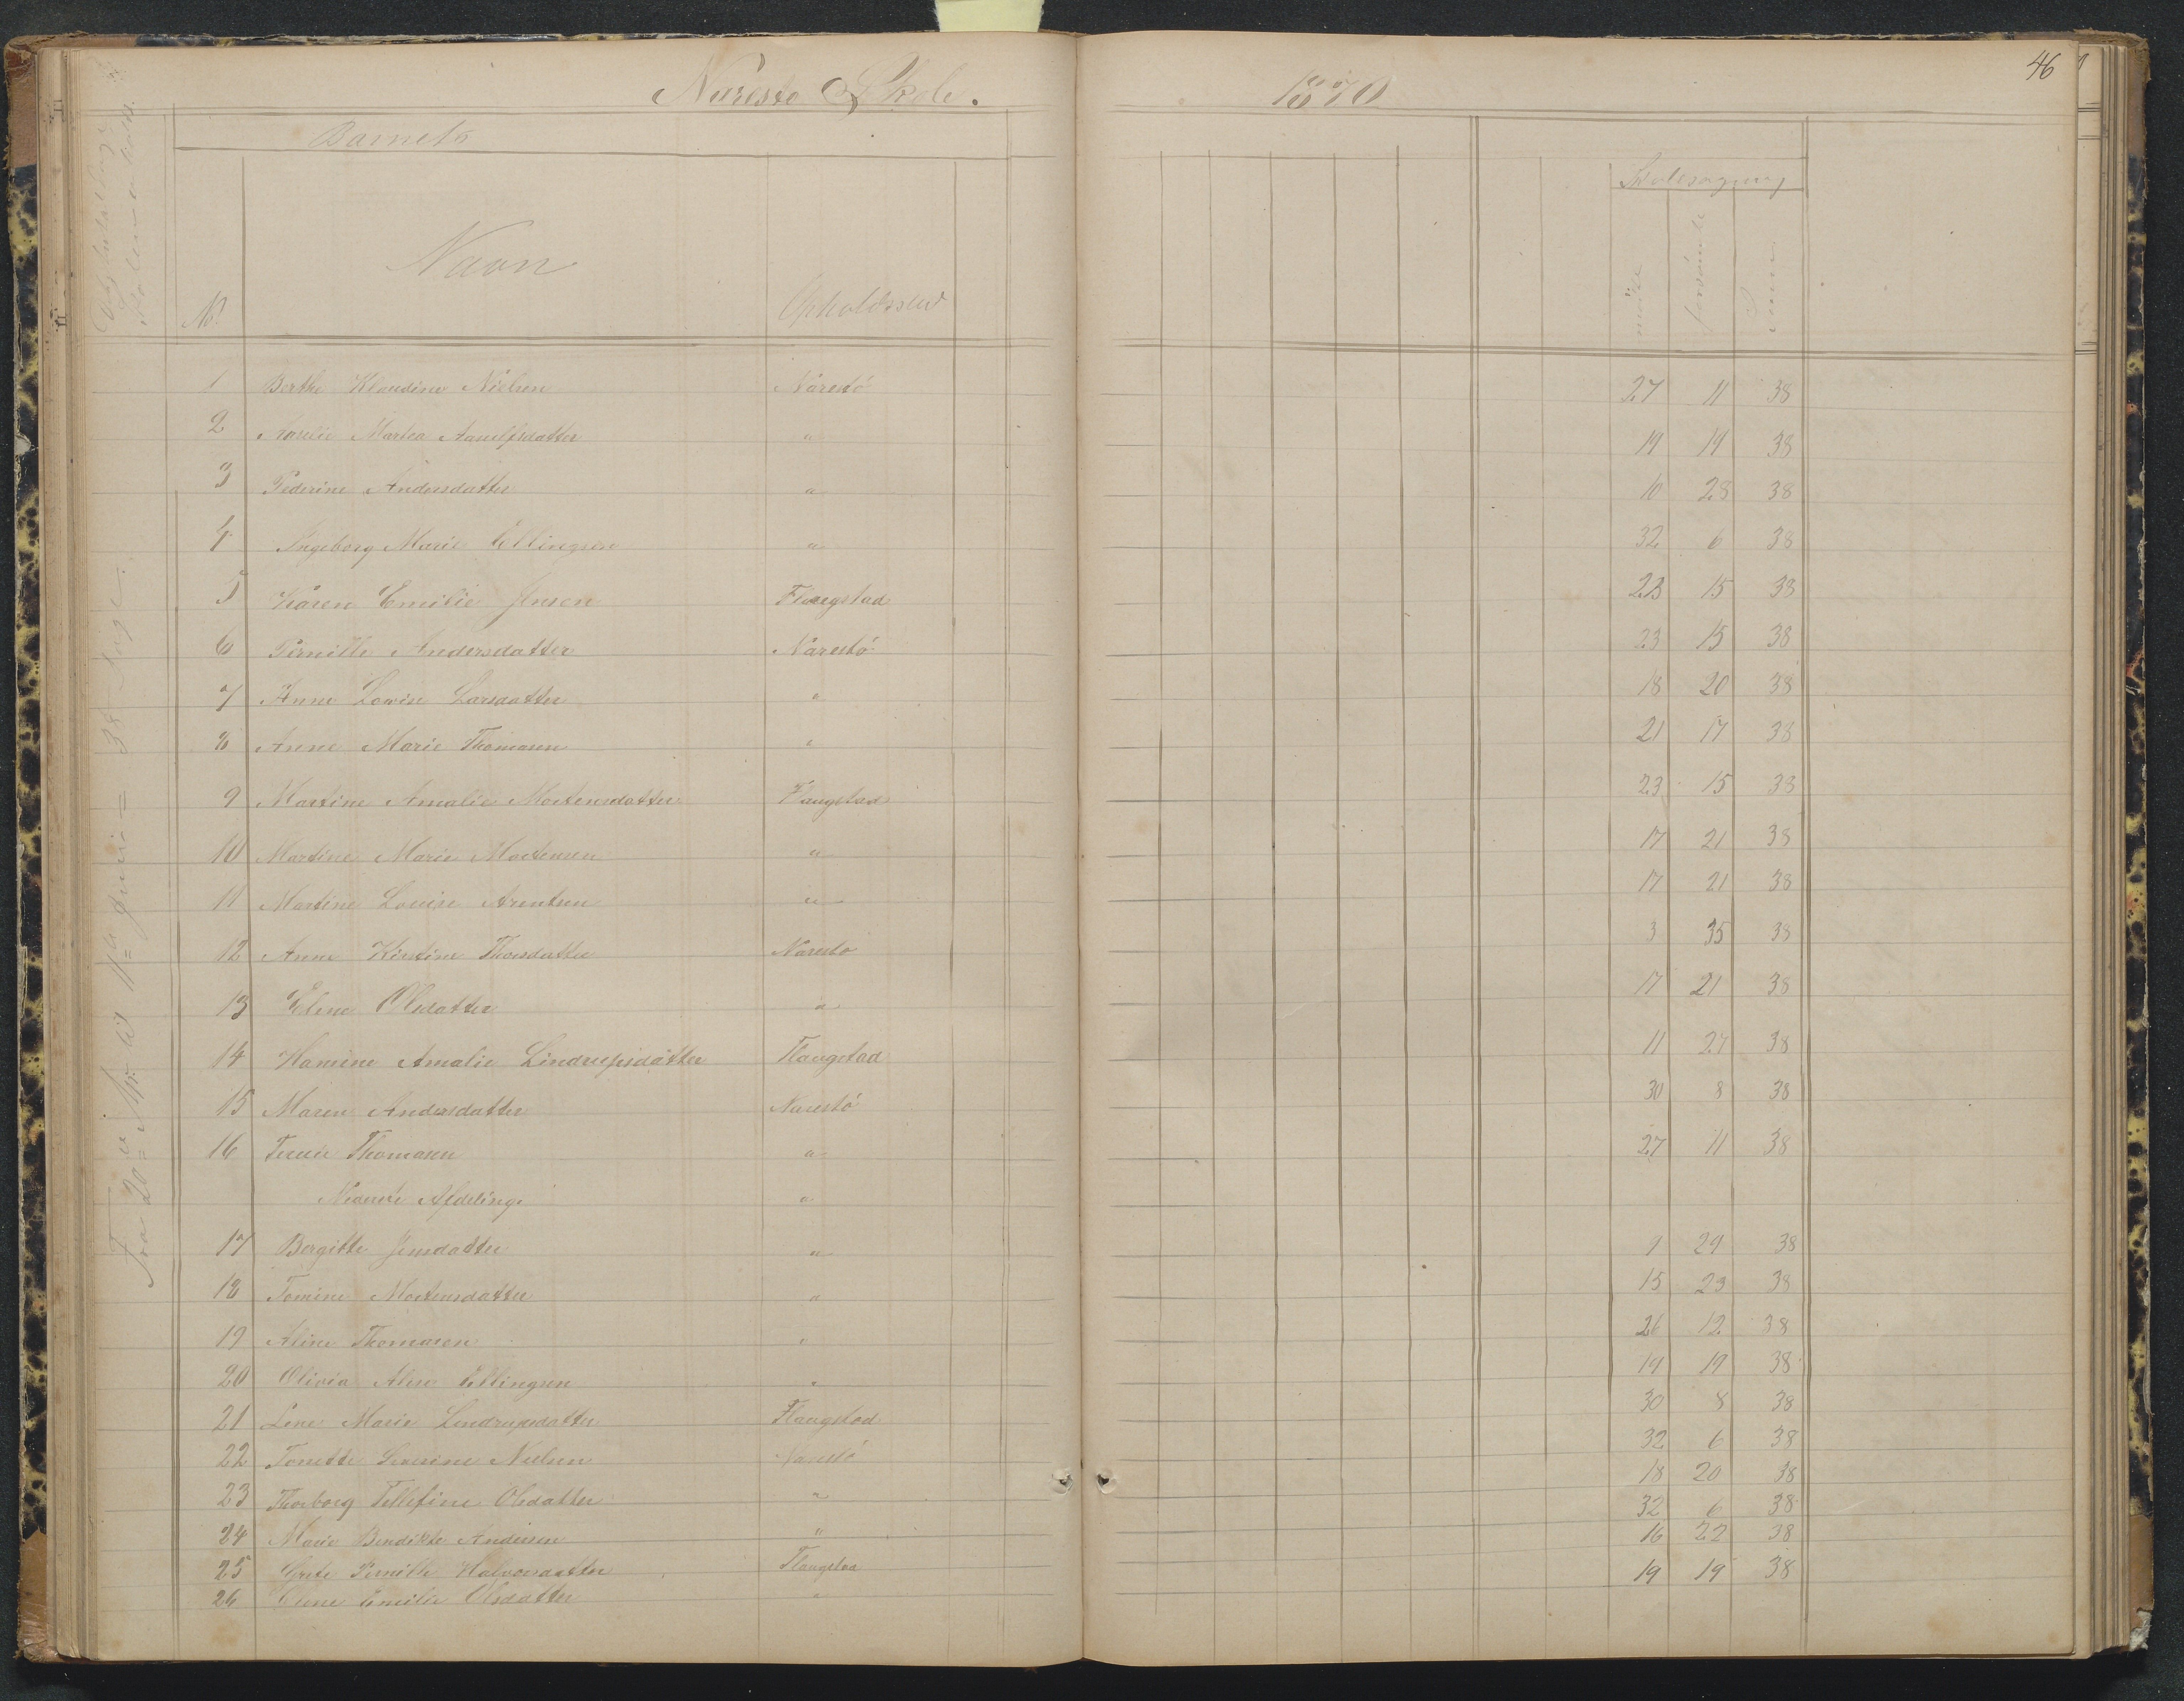 46
Narestø Skole. 1870
Barnets
Skolesøgning
No Navn Opholdssted mødte forsømte Sum
1 Berthe Klaudine Nielsen Narestö 27 11 38
2 Marthea " 19 19 38
3 Pederine Andersdatter " 10 28 38
4 Ingeborg Marie Ellingsen " 32 6 38
5 Karen Emilie Jensen Flangstad 23 15 38
6 Pernille Andersdatter Narestö 23 15 38
7 Anne Lovise Larsdatter " 18 20 38
8 Anne Marie Thomasen " 21 17 38
9 Martine Amalie Mortensdatter Flangstad 23 15 38
10 Martine Marie Mortensen " 17 21 38
11 Martine Louise Arentsen " 17 21 38
12 Anne Kirstine Thorsdatter Naresto 3 35 38
13 Eline Olsdatter " 17 21 38
14 Hansine Amalie Lindrupsdatter Flangstad 11 27 38
15 Maren Andersdatter Narestö 30 8 38
16 Thomasen " 27 11 38
Nederste Afdeling. "
17 Bergitte Jensdatter " 9 29 38
18 Tomine Mortensdatter " 15 23 38
19 Aline Thomasen " 26 12 38
20 Olivia Ellingsen " 19 19 38
21 Lene Marie Lindrupsdatter Flangstad 30 8 38
22 Tonette Severine Nielsen Narestö 32 6 38
23 Thorborg Tellefine Olsdatter " 18 20 38
24 Marie Bendikte Andersen " 32 6 38
25 Grete Pernille Halvorsdatter Flangstad 16 22 38
26 Emilie Olsdatter " 19 19 38
Fra 20de til 11te Juni = 38 Dage.